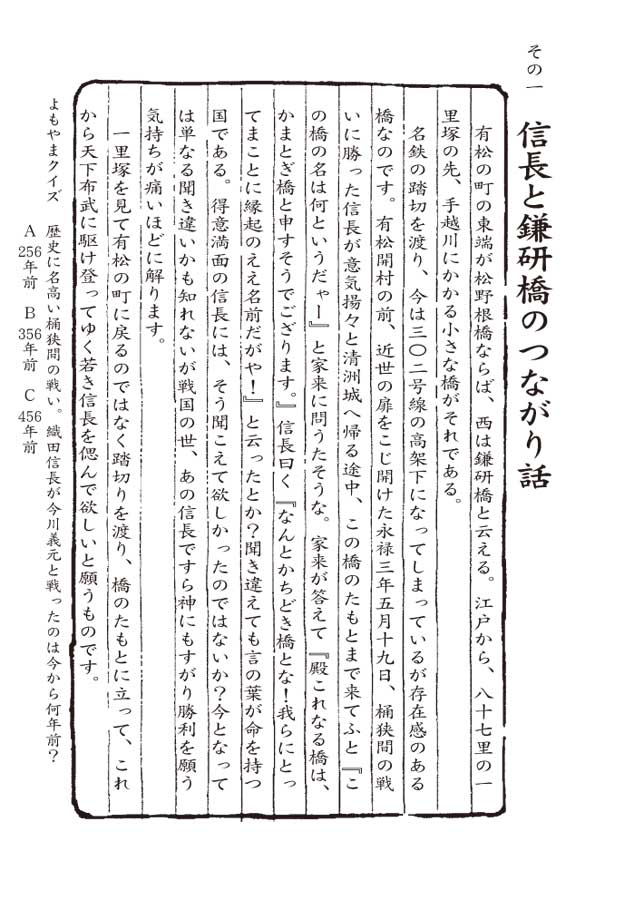 その一
信長と鎌研橋のつながり話
有松の町の東端が松野根橋ならば、西は鎌研橋と云える。江戸から、八十七里の一
里塚の先、手越川にかかる小さな橋がそれである。
名鉄の踏切を渡り、今は三〇二号線の高架下になってしまっているが存在感のある
橋なのです。有松開村の前、近世の扉をこじ開けた永禄三年五月十九日、桶狭間の戦
いに勝った信長が意気揚々と清洲城へ帰る途中、この橋のたもとまで来てふと『こ
の橋の名は何というだゃー』と家来に問うたそうな。家来が答えて『殿これなる橋は、
かまとぎ橋と申すそうでござります。』信長曰く『なんとかちどき橋とな！我らにとっ
てまことに縁起のええ名前だがや！』と云ったとか？聞き違えても言の葉が命を持つ
国である。得意満面の信長には、そう聞こえて欲しかったのではないか？今となって
は単なる聞き違いかも知れないが戦国の世、あの信長ですら神にもすがり勝利を願う
気持ちが痛いほどに解ります。
一里塚を見て有松の町に戻るのではなく踏切りを渡り、橋のたもとに立って、これ
から天下布武に駆け登ってゆく若き信長を偲んで欲しいと願うものです。
よもやまクイズ 歴史に名高い桶狭間の戦い。織田信長が今川義元と戦ったのは今から何年前？
A 256年前 B 356年前 C 456年前